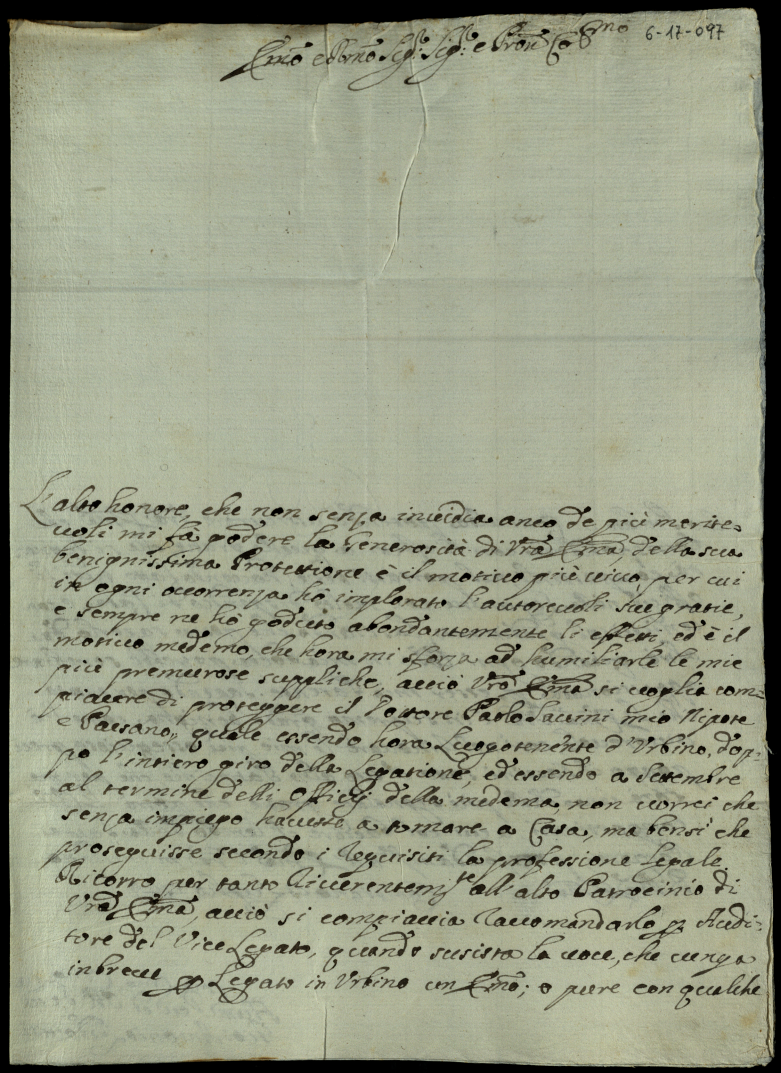 6-17-097
Emo e Rmo Sig.r Sig.r e Pron Colmo
L'alto honore, che non senza inuidia anco de più merite=
uoli mi fà godere la Generosità di Vra Emza della sua
benignissima Protettione è il motiuo più uiuo, per cui
in ogni occorrenza hò implorato l'autoreuoli sue gratie,
e sempre ne hò goduto abondantemente li effetti, ed è il
motiuo medemo, che hora mi sforza ad humiliarle le mie
più premurose suppliche, acciò Vra Emza si uoglia com=
piacere di proteggere il Dottore Paolo Saccini mio Nipote
e Paesano, quale essendo hora Luogotenente d'Vrbino, dop=
po l'intiero giro della Legatione, ed essendo a Settembre
al termine delli officij della medema, non uorrei che
senza impiego hauesse a tornare a Casa, ma bensì che
proseguisse secondo i requisiti la professione legale.
Ricorro per tanto riuerentemte all'alto Patrocinio di
Vra Emza, acciò si compiaccia raccomandarlo p Audi=
tore del Vice Legato, quando sussista la uoce, che uenga
in breue p Legato in Vrbino un Emo; o pure con qualche